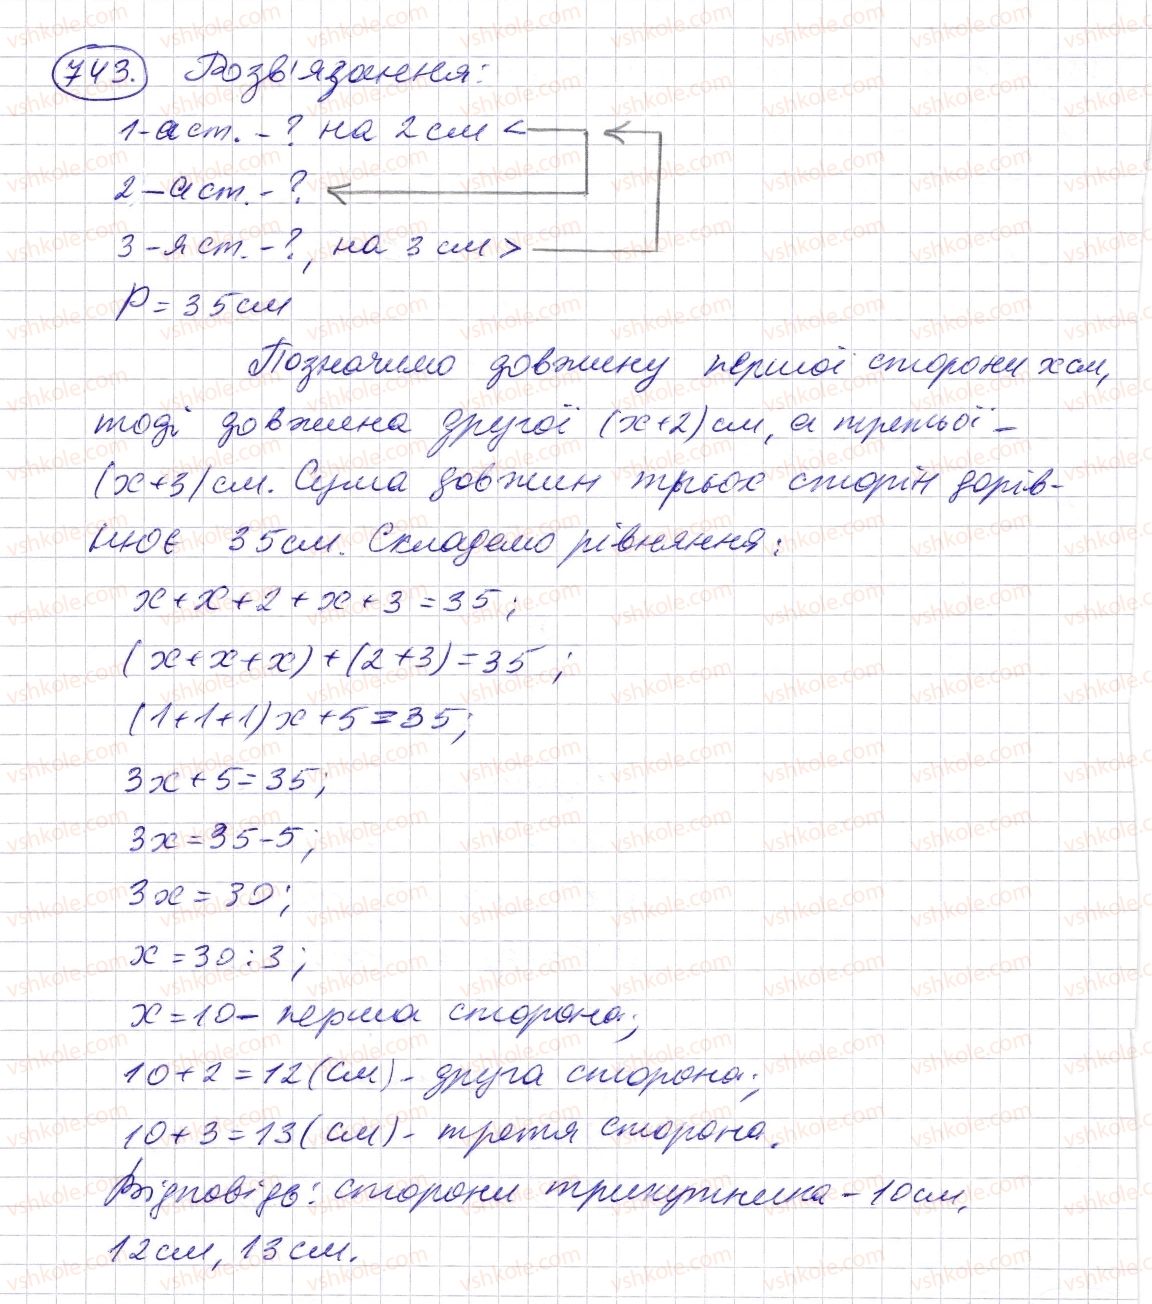 743. Розв'язання:
1-а ст. - ? на 2 см <
2-а ст. - ?
3-я ст. - ?, на 3 см >
P = 35 см
Позначимо довжину першої сторони x см,
тоді довжина другої (x+2) см, а третьої –
(x+3) см. Сума довжин трьох сторін дорів-
нює 35 см. Складемо рівняння:
x + x + 2 + x + 3 = 35;
(x + x + x) + (2 + 3) = 35;
(1+1+1)x + 5 = 35;
3x + 5 = 35;
3x = 35 - 5;
3x = 30;
x = 30 : 3;
x = 10 – перша сторона;
10 + 2 = 12 (см) - друга сторона;
10 + 3 = 13 (см) - третя сторона.
Відповідь: сторони трикутника - 10 см,
12 см, 13 см.
vshkole.com